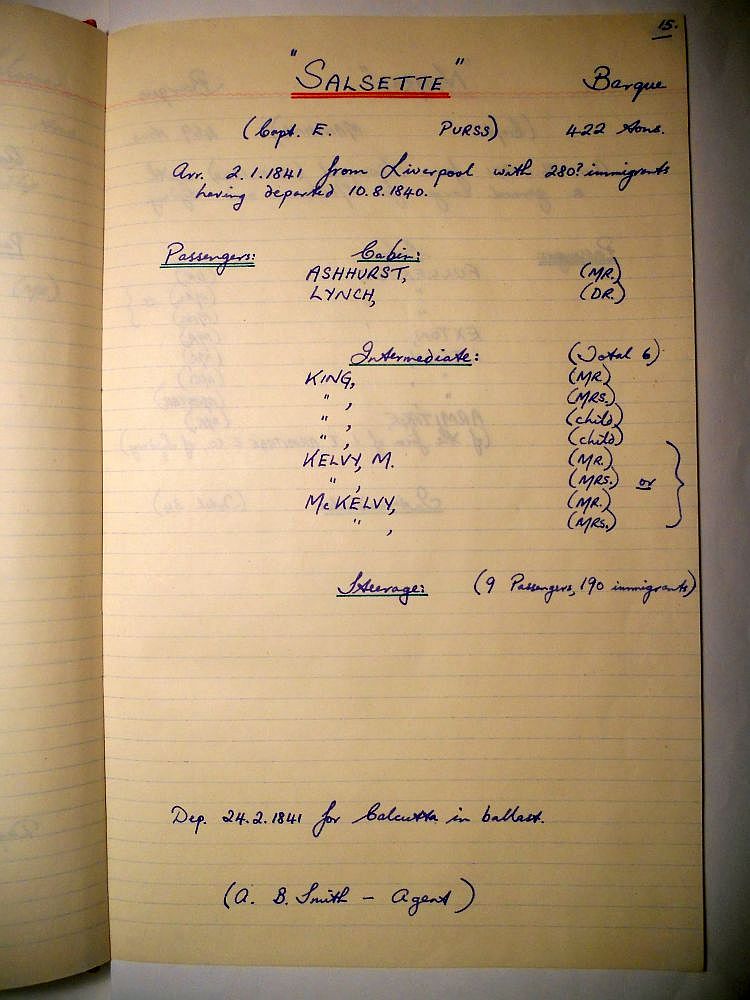 15.
"SALSETTE" Barque
(Capt. E. PURSS) 422 tons.
Arr. 2.1.1841 from Liverpool with 280? immigrants
having departed 10.8.1840.
Passengers: Cabin:
ASHHURST, (MR.)
LYNCH, (DR.)
Intermediate: (Total 6)
KING, (MR.)
" , (MRS.)
" , (child)
" , (child)
KELVY, M. (MR.)
" , (MRS.) or
McKELVY, (MR.)
" , (MRS.)
Steerage: (9 Passengers, 190 immigrants)
Dep. 24.2.1841 for Calcutta in ballast.
(A. B. Smith - Agent)